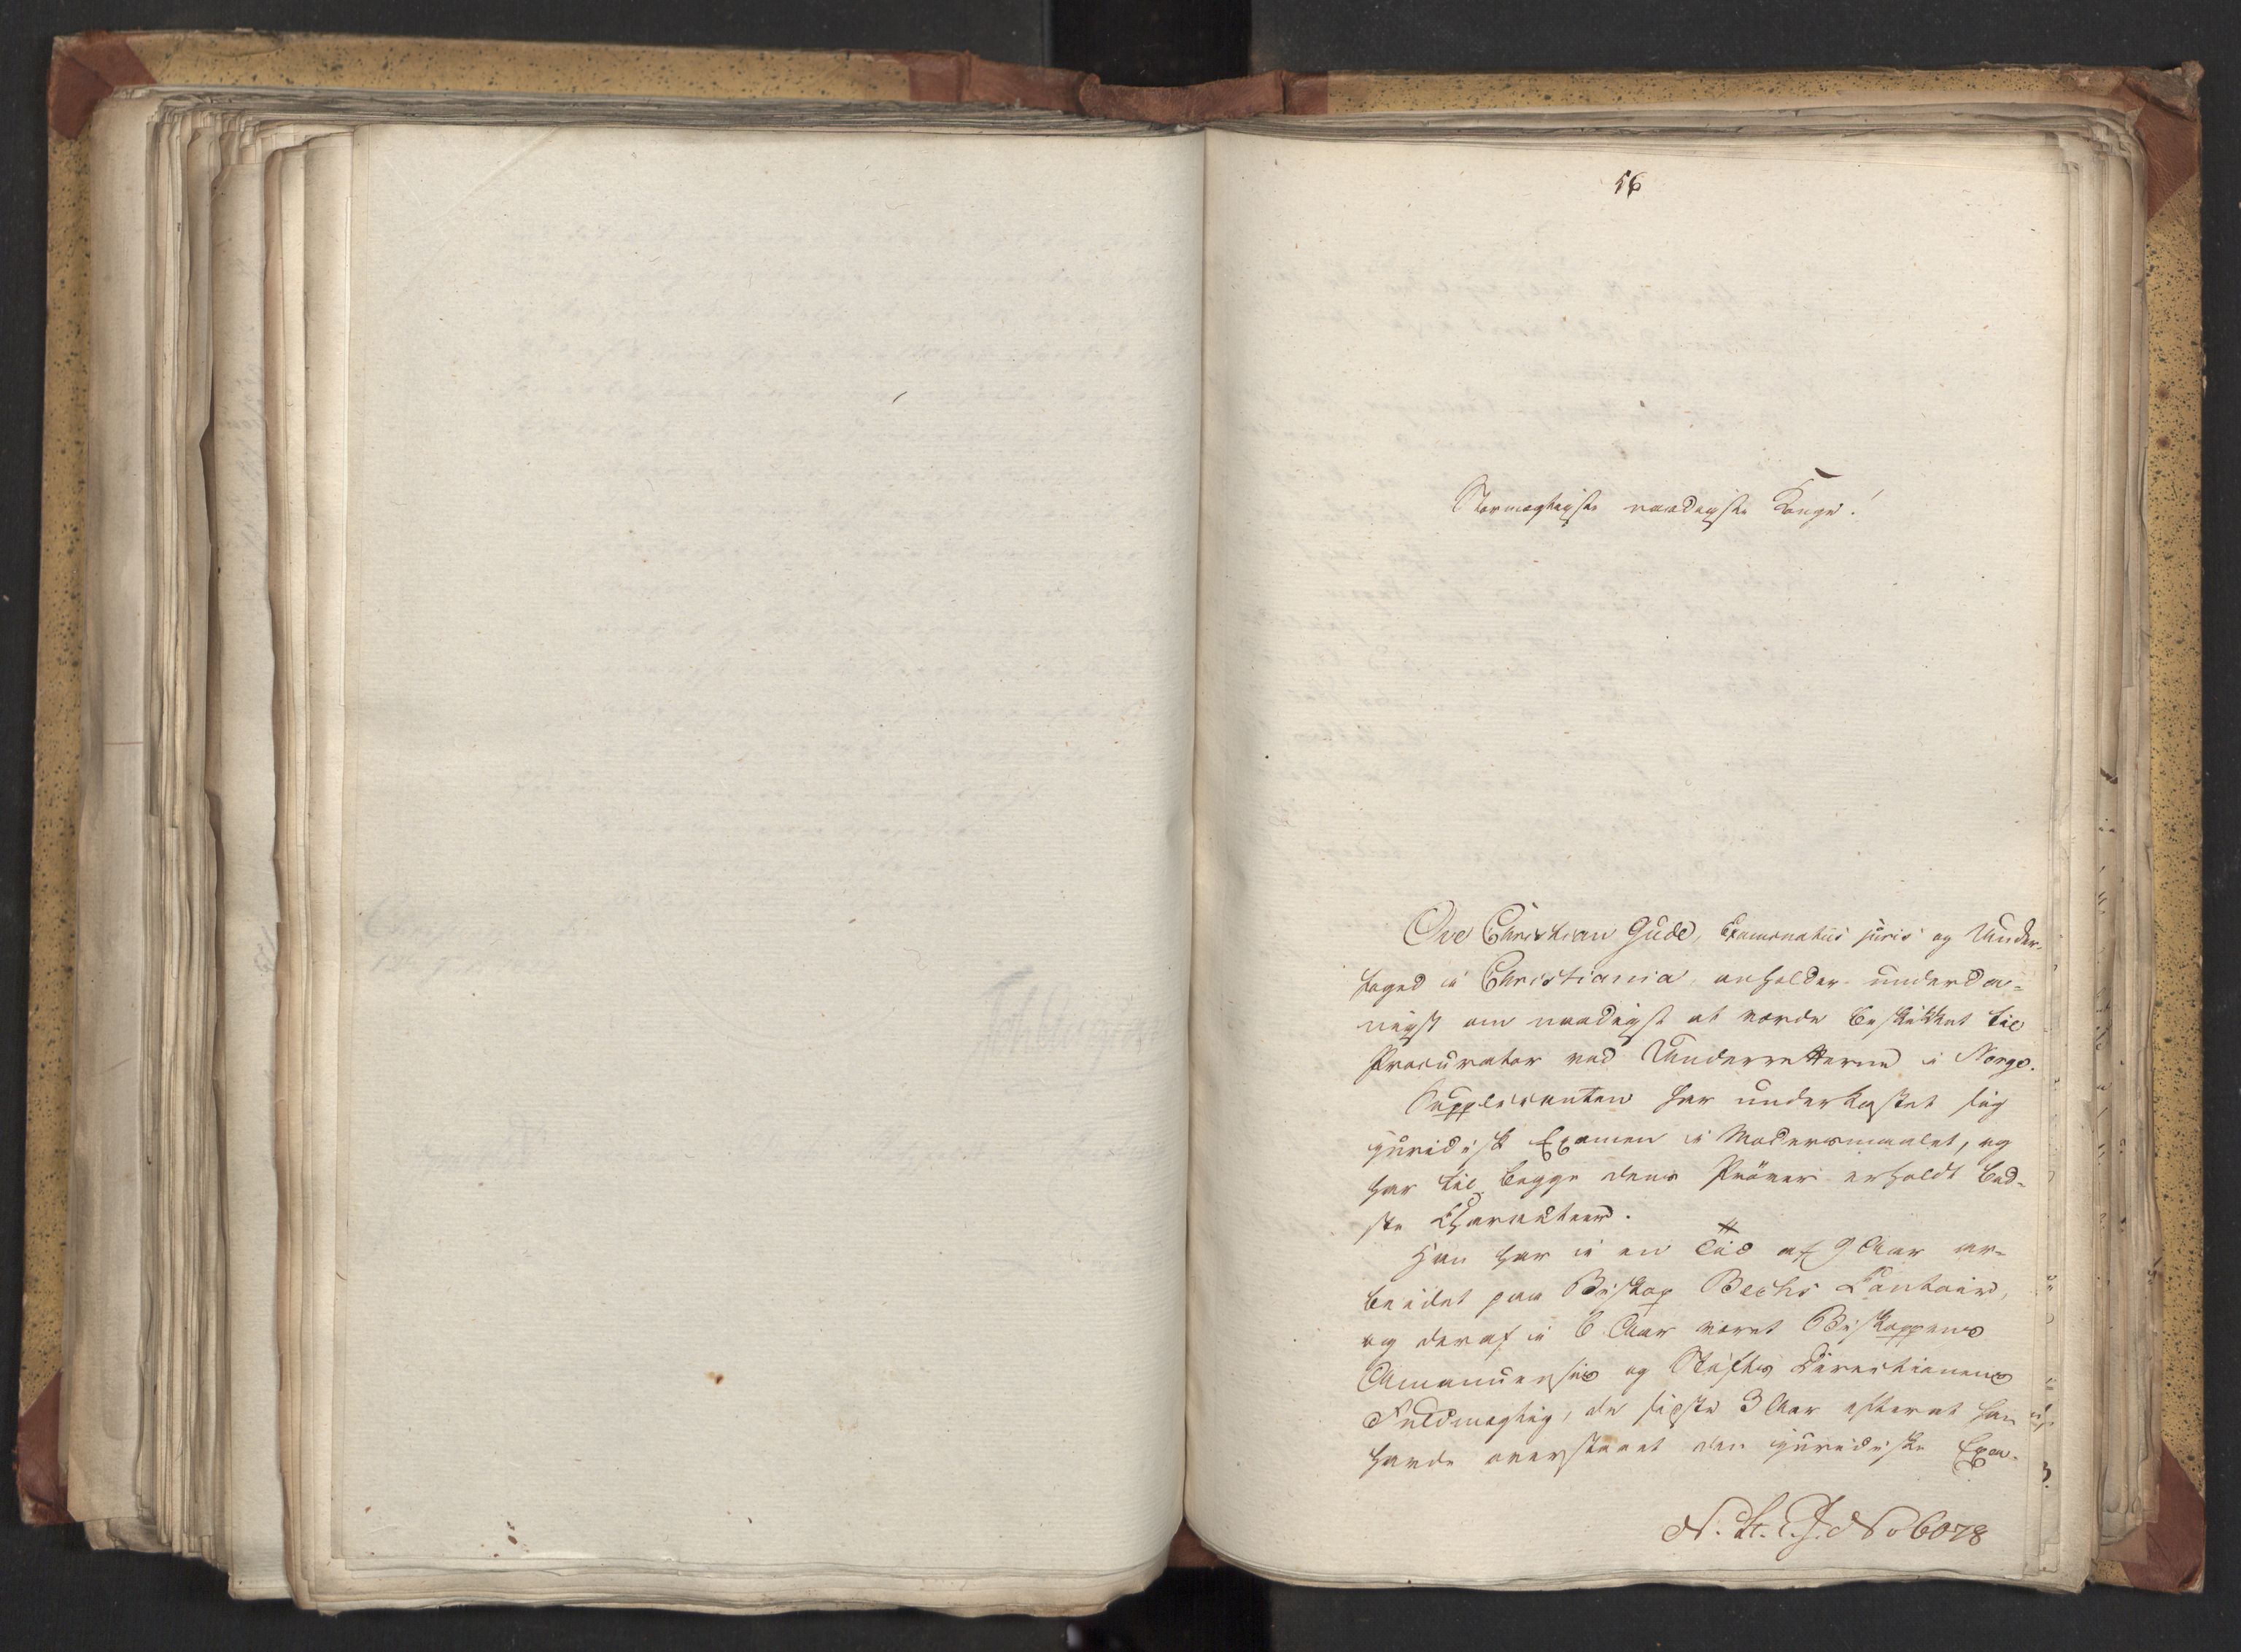 56
Stormægtigste naadigste Konge!
Ove Christian Gude, Examinatus juris og Under-
foged i Christiania, anholder underda-
nigst om naadigst at vorde beskikket til
Procurator ved Underretterne i Norge.
Supplicanten har underkastet sig
juridisk Examen i Modersmaalet, og
har til begge dens Pröver erholdt bed-
ste Characteer.
Han har i en Tiid af 9 Aar ar-
beidet paa Biskop Bechs Contoir,
og deraf i 6 Aar været Biskoppens
Amanuensis og Stifts Directionens
Fuldmægtig, de sidste 3 Aar efterat han
havde overstaaet den juridiske Exa-
N. St. C. J. No 6078